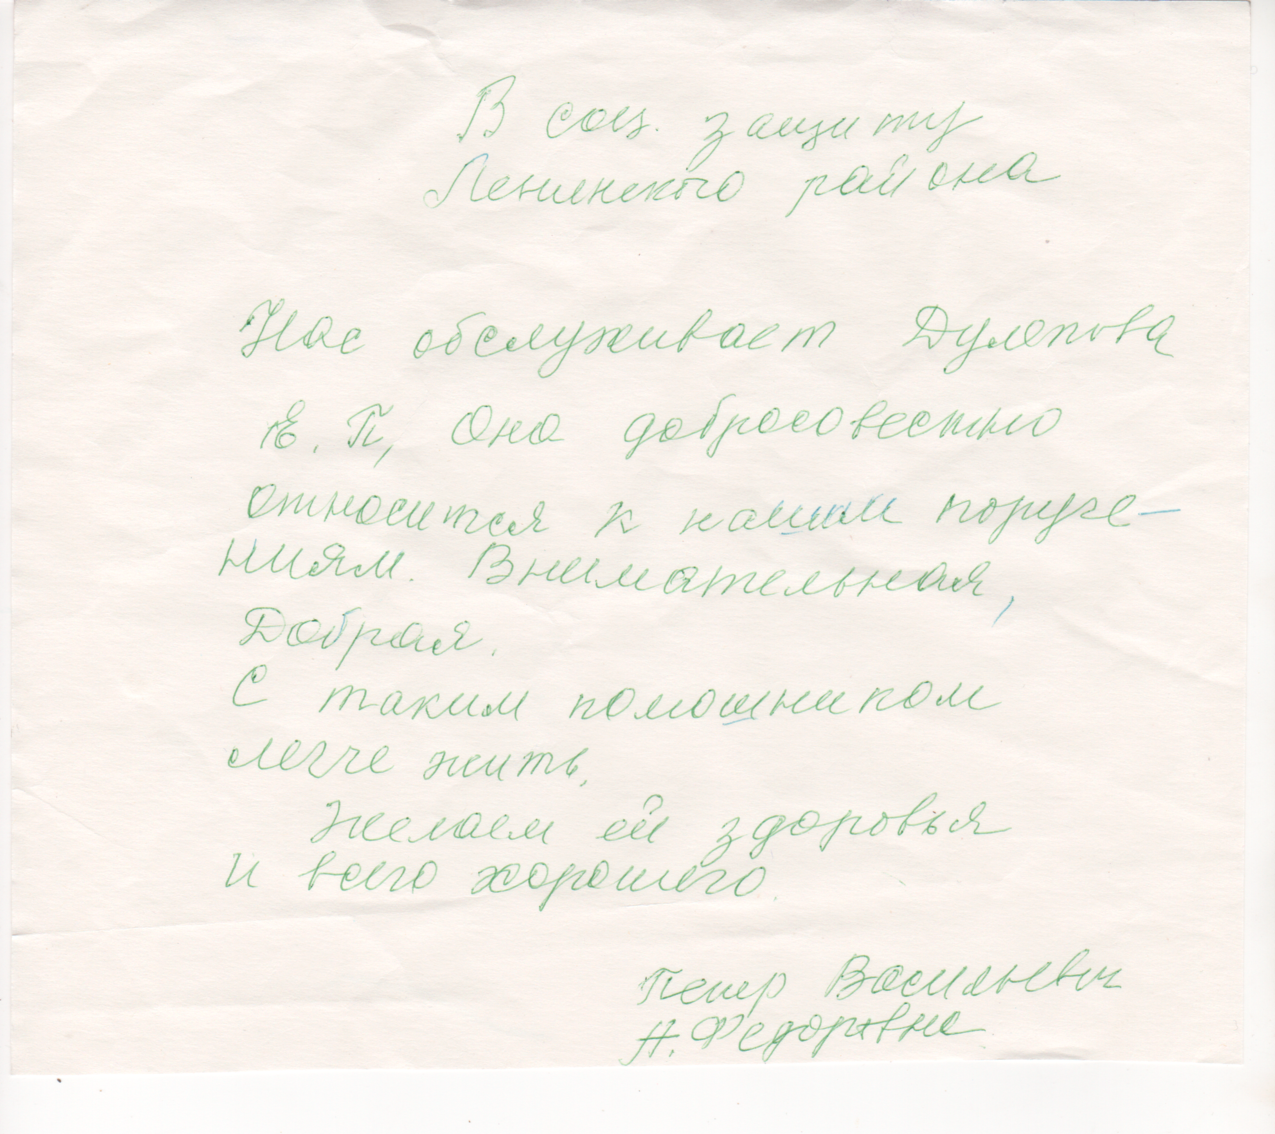 В соц. защиту
Ленинского района
Нас обслуживает Дулепова
Е. П, Она добросовестно
относится к нашим поруче-
ниям. Внимательная,
Добрая.
С таким помошником
легче жить.
Желаем ей здоровья
и всего хорошего.
Петр Васильевич
А. Федоровна